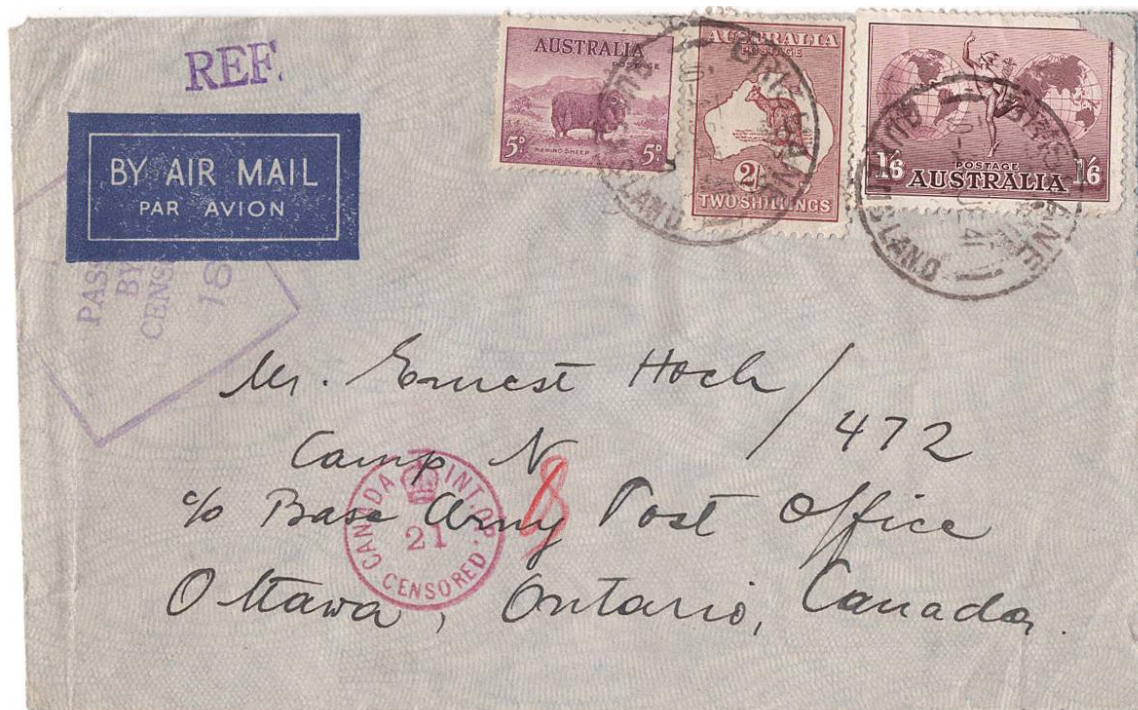 REF.
BY AIR MAIL
PAR AVION
PAS
BY
CENS
18
AUSTRALIA
POSTAGE
5D MERINO SHEEP 5D
AUSTRALIA
POSTAGE
2/-
TWO SHILLINGS
1/6 POSTAGE 1/6
AUSTRALIA
BRISBANE
41
BRISBANE
Mr. Ernest Hoch / 472
Camp N
8
c/o Base Army Post Office
Ottawa, Ontario, Canada.
CANADA INT. OP.
21
CENSORED